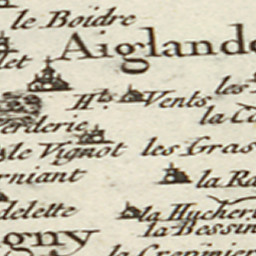 le Boïdre
Aiglande
let
Hts Vents
les
la Co
erderie
le Vignot
les Gras
rniant
la Ra
delette
la Hucher
la Bessin
igny
la Crepinier